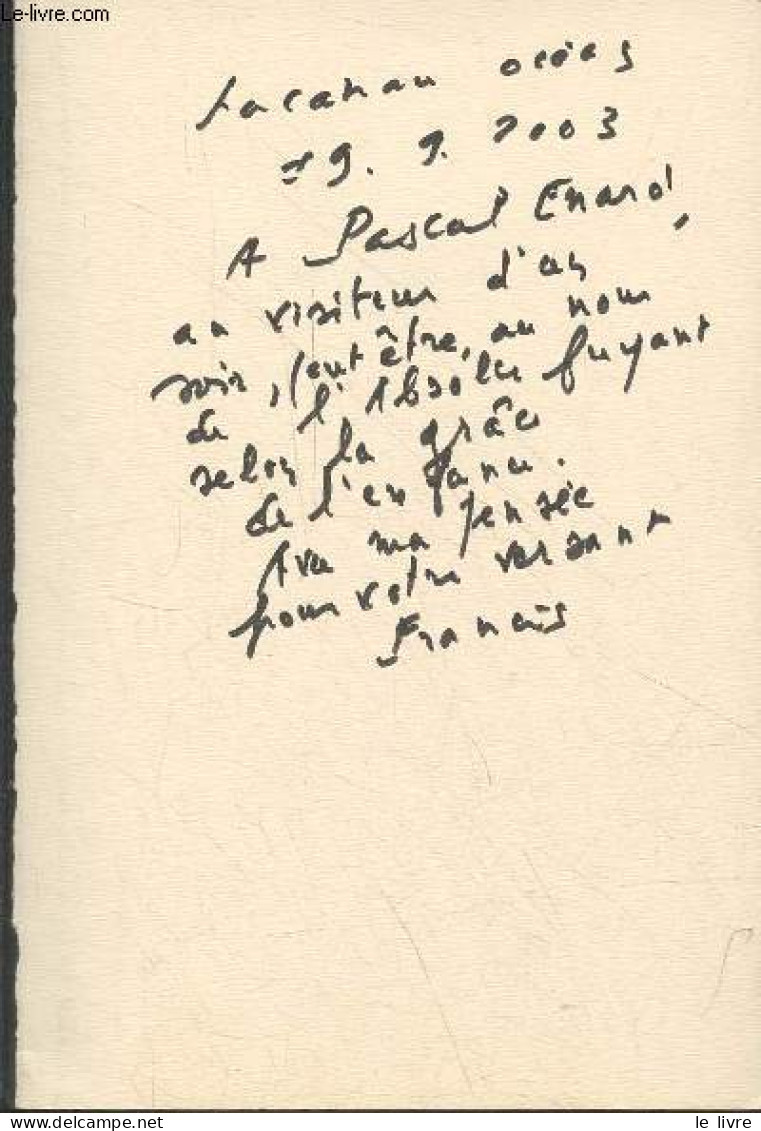 Le-livre.com
Lacanau océan
19. 9. 2003
A Pascal Enard,
au visiteur d'un
soir, peut être, au nom
de l'Absolu fuyant
selon la grâce
de l'enfance.
Avec ma pensée
pour votre versant
Francis
le livre